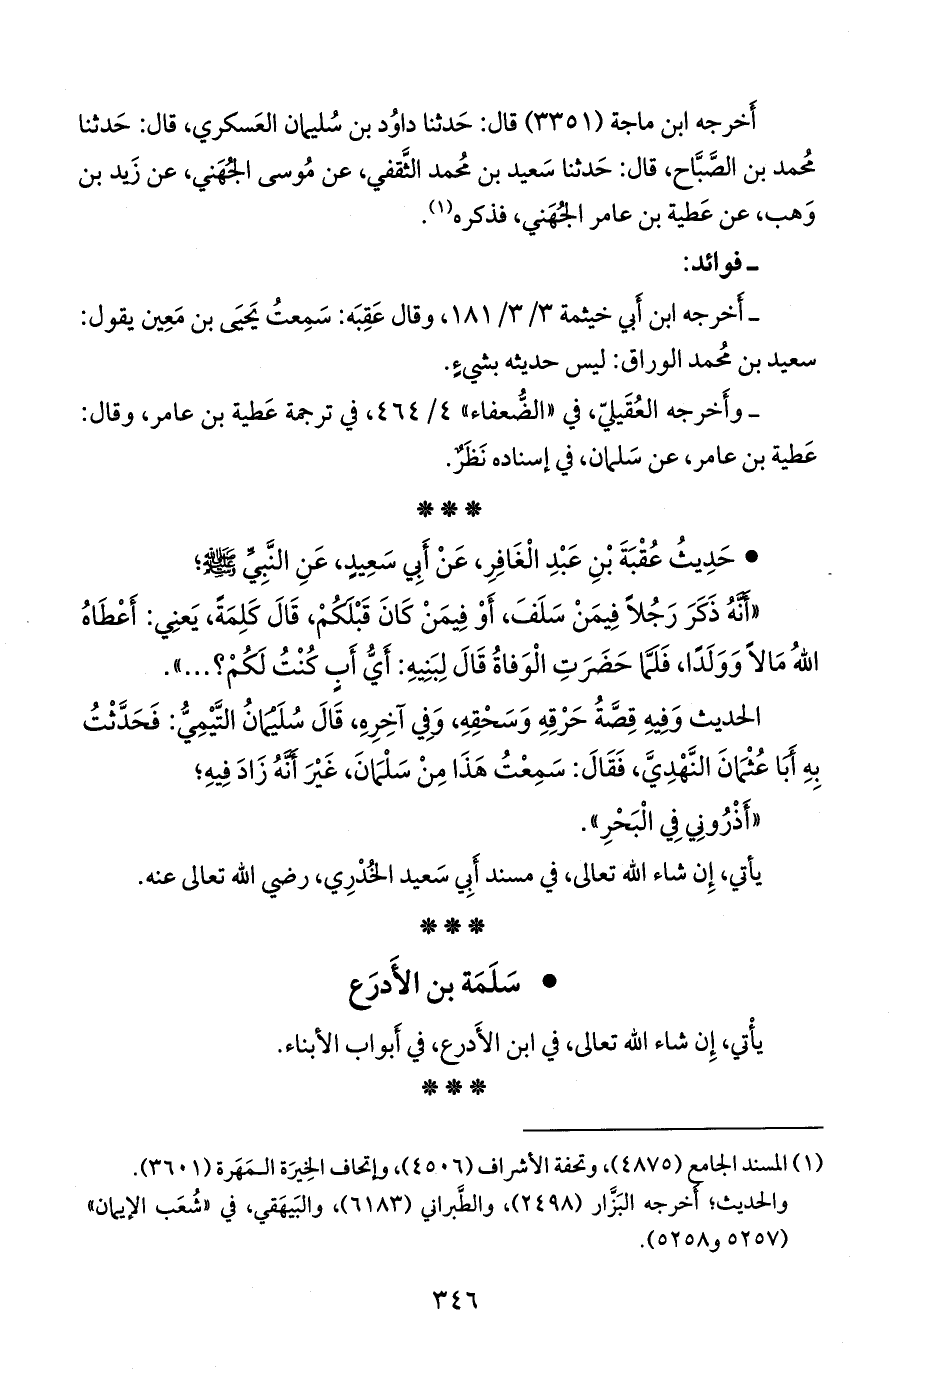 أَخرجه ابن ماجة (٣٣٥١) قال: حَدثنا داوُد بن سُليمان العَسكري، قال: حَدثنا
مُحمد بن الصَّبَّاح، قال: حَدثنا سَعيد بن مُحمد الثَّقفي، عن مُوسى الجُهَني، عن زَيد بن
وَهب، عن عَطية بن عامر الجُهَني، فذكره(١).
ـ فوائد:
ـ أَخرجه ابن أَبي خيثمة ٣/ ٣/ ١٨١، وقال عَقِبَه: سَمِعتُ يَحيَى بن مَعِين يقول:
سعيد بن مُحمد الوراق: ليس حديثه بشيءٍ.
ـ وأَخرجه العُقَيليّ، في «الضُّعفاء» ٤/ ٤٦٤، في ترجمة عَطية بن عامر، وقال:
عَطية بن عامر، عن سَلمان، في إِسناده نَظَرٌ.
***
• حَدِيثُ عُقْبَةَ بْنِ عَبْدِ الْغَافِرِ، عَنْ أَبِي سَعِيدٍ، عَنِ النَّبِيِّ ﷺ؛
«أَنَّهُ ذَكَرَ رَجُلاً فِيمَنْ سَلَفَ، أَوْ فِيمَنْ كَانَ قَبْلَكُمْ، قَالَ كَلِمَةً، يَعنِي: أَعْطَاهُ
اللهُ مَالاً وَوَلَدًا، فَلَمَّا حَضَرَتِ الْوَفاةُ قَالَ لِبَنِيهِ: أَيُّ أَبٍ كُنْتُ لَكُمْ؟...».
الحديث وَفِيهِ قِصَّةُ حَرْقِهِ وَسَحْقِهِ، وَفِي آخِرِهِ، قَالَ سُلَيْمَانُ التَّيْمِيُّ: فَحَدَّثْتُ
بِهِ أَبَا عُثْمَانَ النَّهْدِيَّ، فَقَالَ: سَمِعْتُ هَذَا مِنْ سَلْمَانَ، غَيْرَ أَنَّهُ زَادَ فِيهِ؛
«أَذْرُونِي فِي الْبَحْرِ».
يأتي، إِن شاء الله تعالى، في مسند أَبي سَعيد الخُدْرِي، رضي الله تعالى عنه.
***
• سَلَمَة بن الأَدرَع
يأْتي، إِن شاء الله تعالى، في ابن الأَدرع، في أَبواب الأبناء.
***
(١) المسند الجامع (٤٨٧٥)، وتحفة الأشراف (٤٥٠٦)، وإتحاف الخِيرَة المَهَرة (٣٦٠١).
والحديث؛ أخرجه البَزَّار (٢٤٩٨)، والطَّبراني (٦١٨٣)، والبَيهَقي، في «شُعَب الإيمان»
(٥٢٥٧ و٥٢٥٨).
٣٤٦